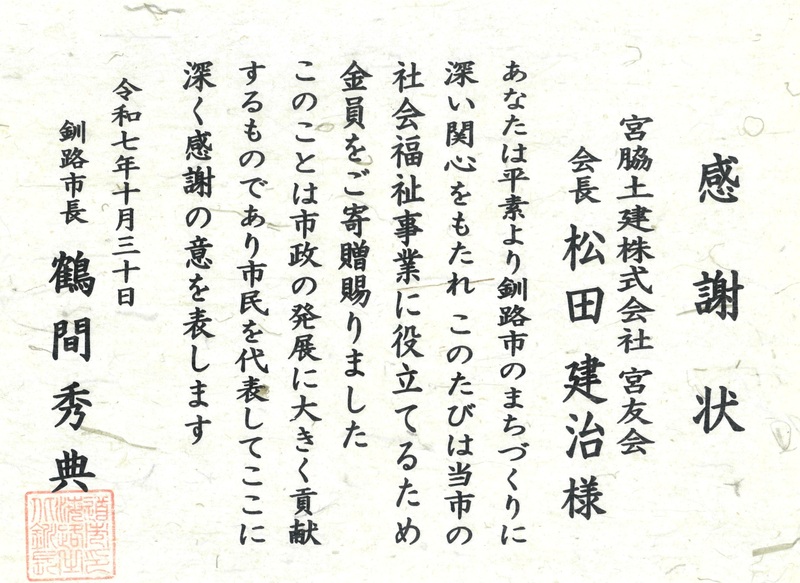 感謝状
宮脇土建株式会社 宮友会
会長 松田建治様
あなたは平素より釧路市のまちづくりに
深い関心をもたれ このたびは当市の
社会福祉事業に役立てるため
金員をご寄贈賜りました
このことは市政の発展に大きく貢献
するものであり市民を代表してここに
深く感謝の意を表します
令和七年十月三十日
釧路市長 鶴間秀典